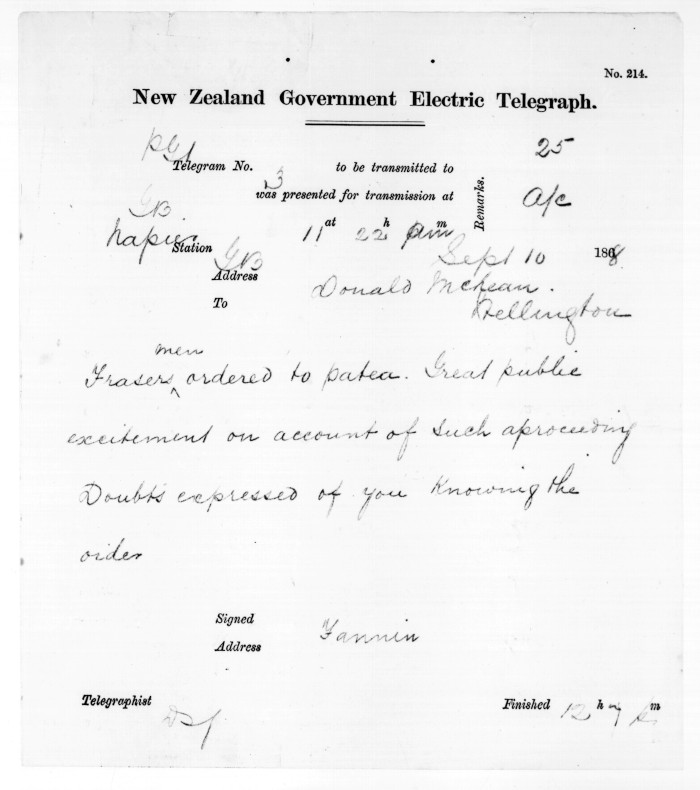 No. 214.
New Zealand Government Electric Telegraph.
25
Telegram No. 3 to be transmitted to
was presented for transmission at
Remarks.
a/c
GB
Napier
Station GB 11 at 22 h am m
Sept 10 1868
Address
To Donald McLean.
Wellington
men
Frasers ^ ordered to patea. Great public
excitement on account of such aproceeding
Doubts expressed of you Knowing the
order
Signed Fannin
Address
Telegraphist
Finished 12 h 7 m